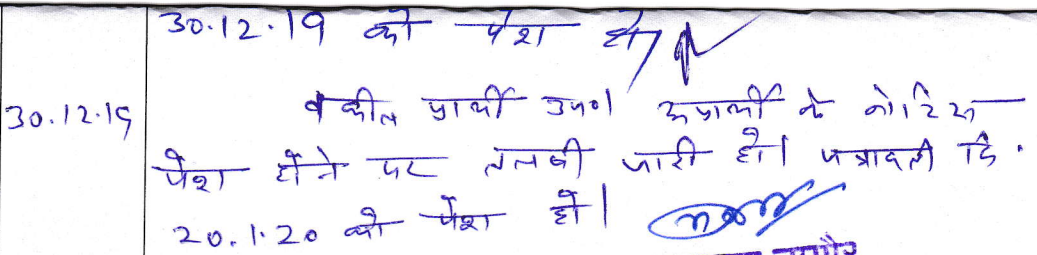 30.12.19 को पेश हो/
30.12.19 वकील प्रार्थी उप०। अप्रार्थी के नोटिस
पेश होने पर तलबी जारी हो। पत्रावली दि.
20.1.20 को पेश हो।